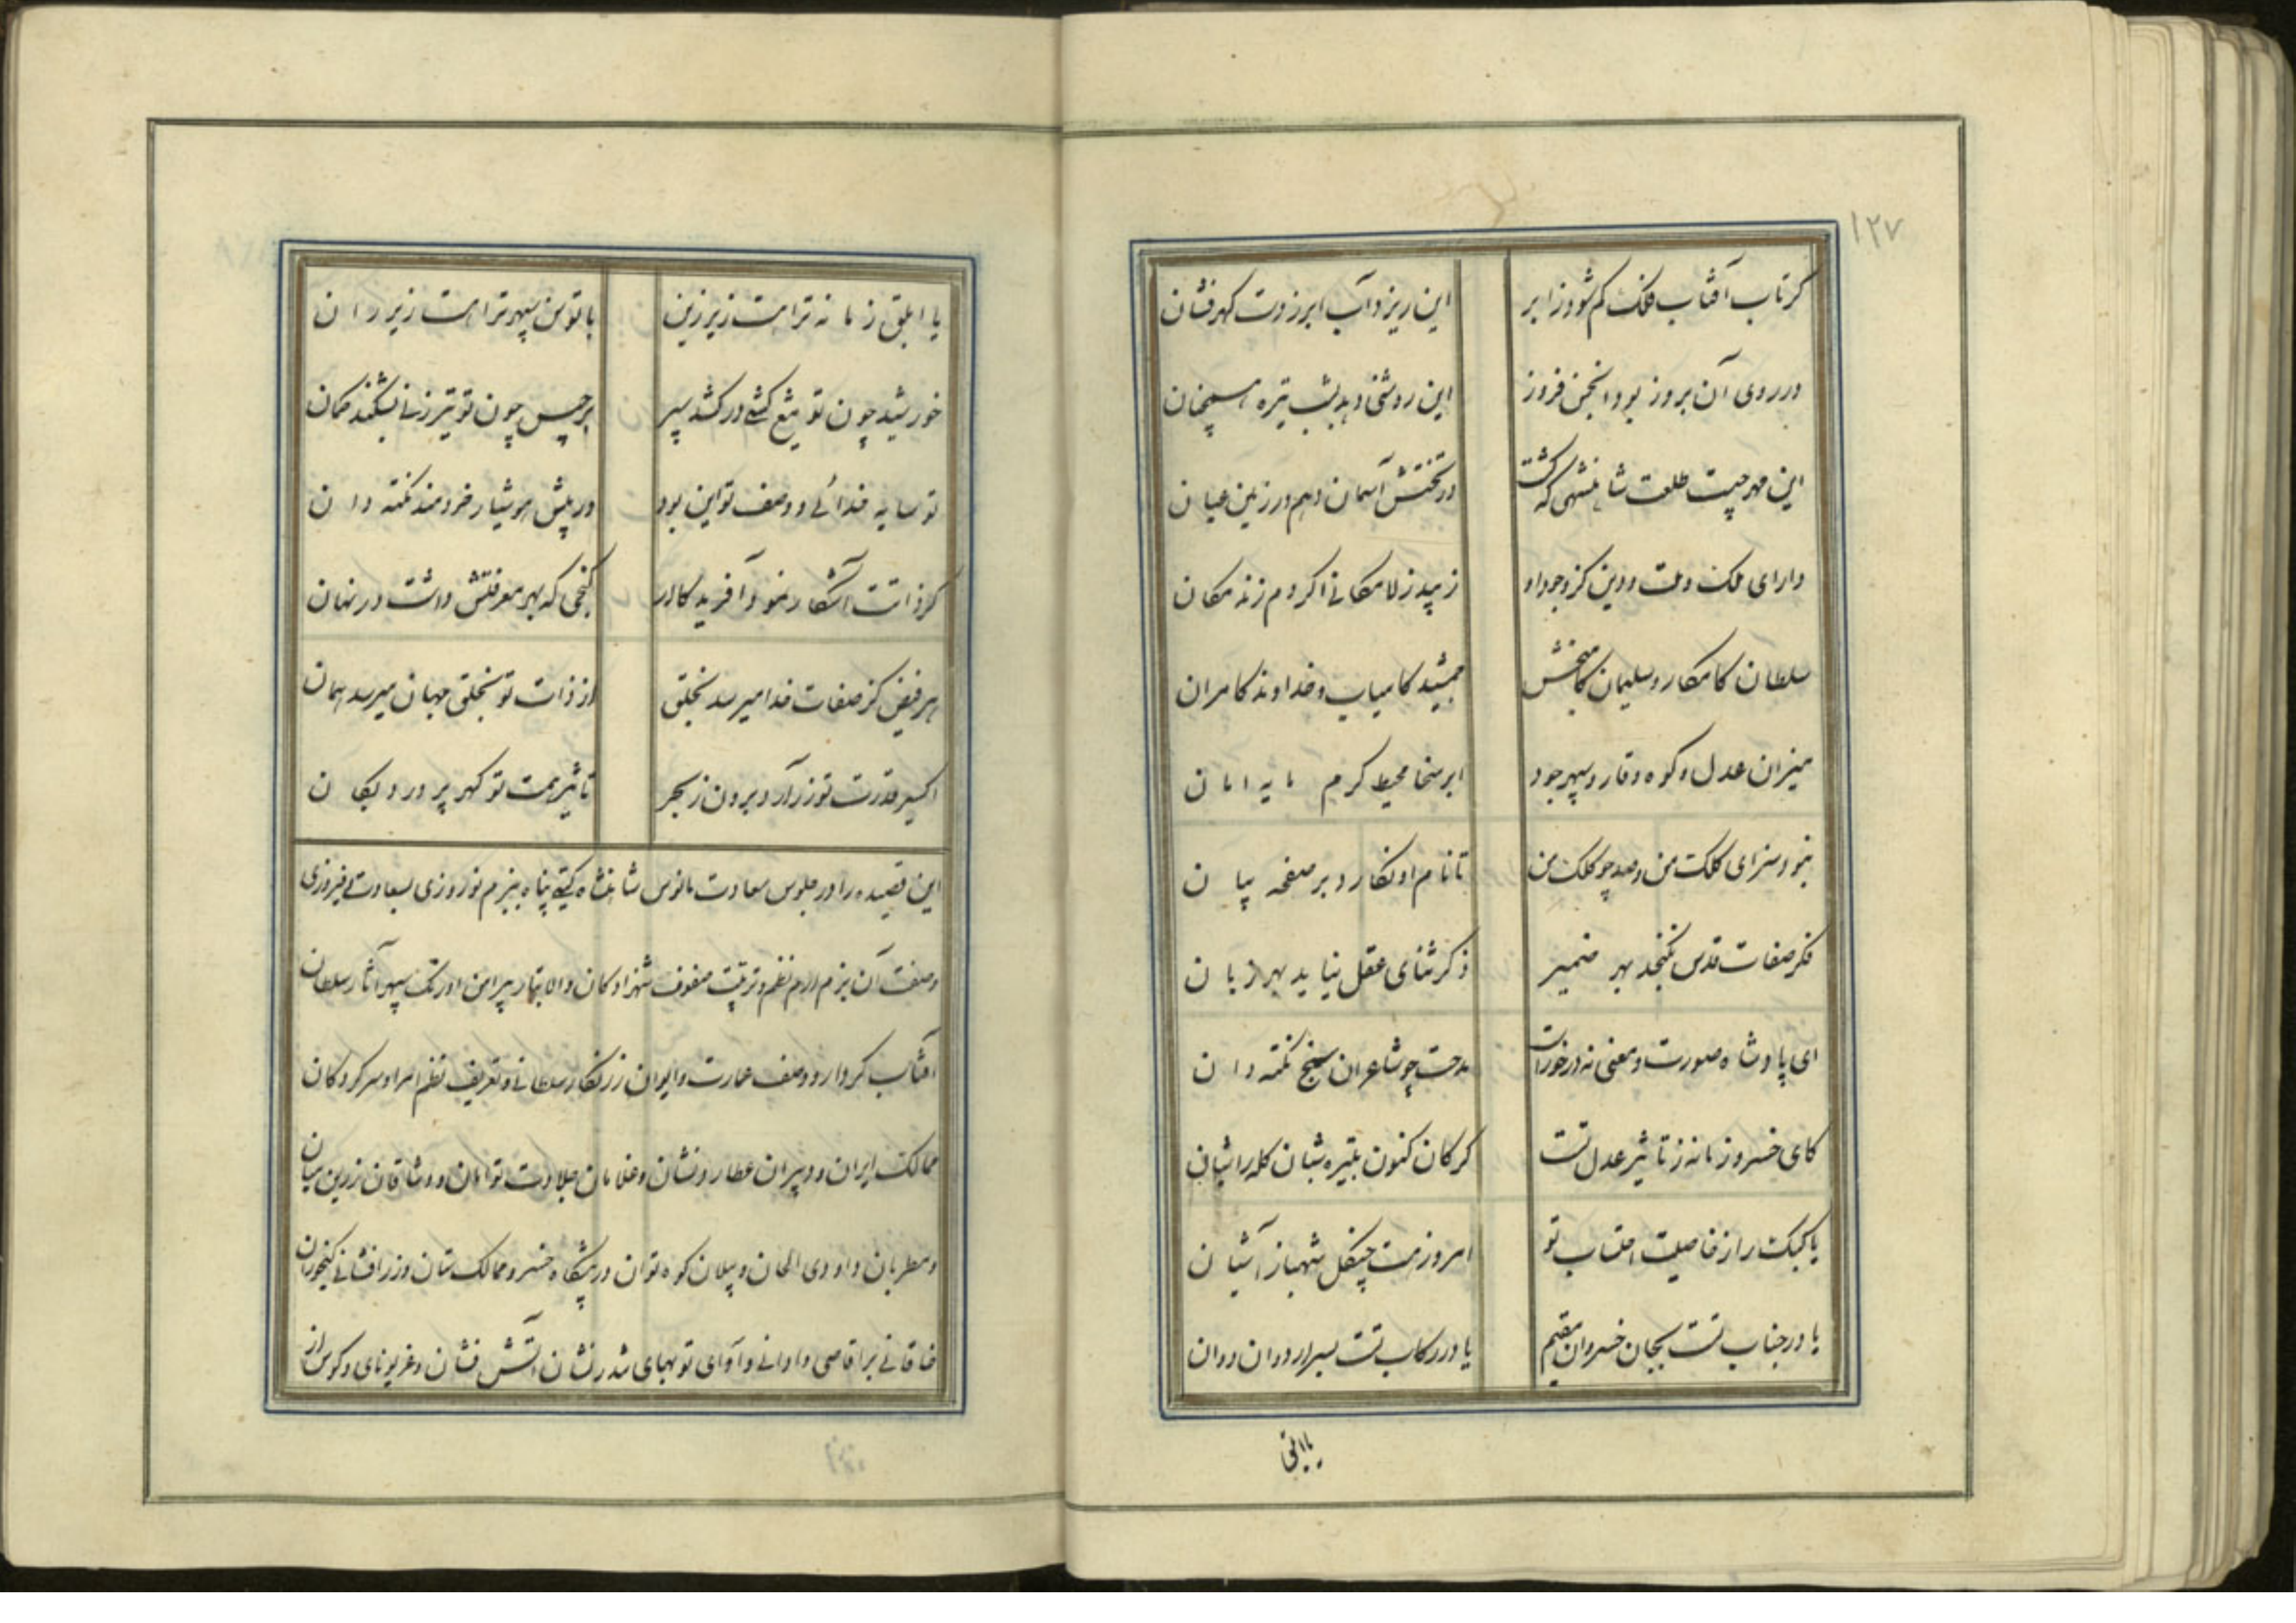 ۱۲۷
کر تاب آفتاب فلک کم شود ز ابر این ریزد آب ابر ز دست کهرفشان
در روی آن بروز بود انجمن فروز این روشنی دهد بشب تیره
این مهر چیست طلعت شاهنشهی که کشت در تختش آسمان دهم در زمین عیان
دارای ملک و ملت و دین کز وجود او زیبد ز لامکانی اکر دم زند مکان
سلطان کامکار و سلیمان کامبخش جمشید کامیاب و خداوند کامران
میزان عدل و کوه وقار و سپهر جود ابر سخا محیط کرم مایه امان
نبود سزای کلک من و صد چو کلک من تا نام او نکارد بر صفحه بیان
فکر صفات قدس نکنجد بهر ضمیر ذکر ثنای عقل نیاید بهر زبان
ای پادشاه صورت و معنی نه درخور است مدحت چو شاعران سخن سنج نکته دان
کای خسرو زمانه ز تاثیر عدل تست کرکان کنون بتیره شبان کله را شبان
یا کبک را ز خاصیت احتساب تو امروز هست چنکل شهباز آشیان
یا در جناب تست بجان خسروان مقیم یا در رکاب تست بسر اردوان دوان
یا ابلق
یا ابلق زمانه ترا هست زیر زین یا توسن سپهر ترا هست زیر ران
خورشید چون تو تیغ کشی در کشد سپر برجیس چون تو تیر زنی بشکند کمان
تو سایه خدائی و وصف تو این بود در پیش هوشیار خردمند نکته دان
کز ذاتت آشکار نمود آفریدکار کنجی که بهر معرفتش داشت در نهان
هر فیض کز صفات خدا میرسد بخلق از ذات تو بخلق جهان میرسد همان
اکسیر قدرت تو زر آرد برون ز بحر تاثیر همت تو کهر پرورد بکان
این قصیده را در جلوس سعادت مانوس شاهنشاه کیتی پناه ببزم نوروزی بسعادت فیروزی
وصفت آن بزم ارم نظم و ترتیب صفوف شهزادکان والاتبار پیرامن اورنک سپهر آثار سلطان
آفتاب کردار و وصف عمارت و ایوان زرنکار سلطانی و تعریف نظم امرا و سرکردکان
ممالک ایران و دبیران عطارد نشان و غلامان جلادت توامان و وشاقان زرین میان
و مطربان داودی الحان و پیلان کوه توان در پیشکاه خسرو ممالک ستان و زرافشانی کنجوران
خاقانی بر اقاصی و ادانی و آوای توپهای شررنشان آتش فشان و غریو نای و کوس از